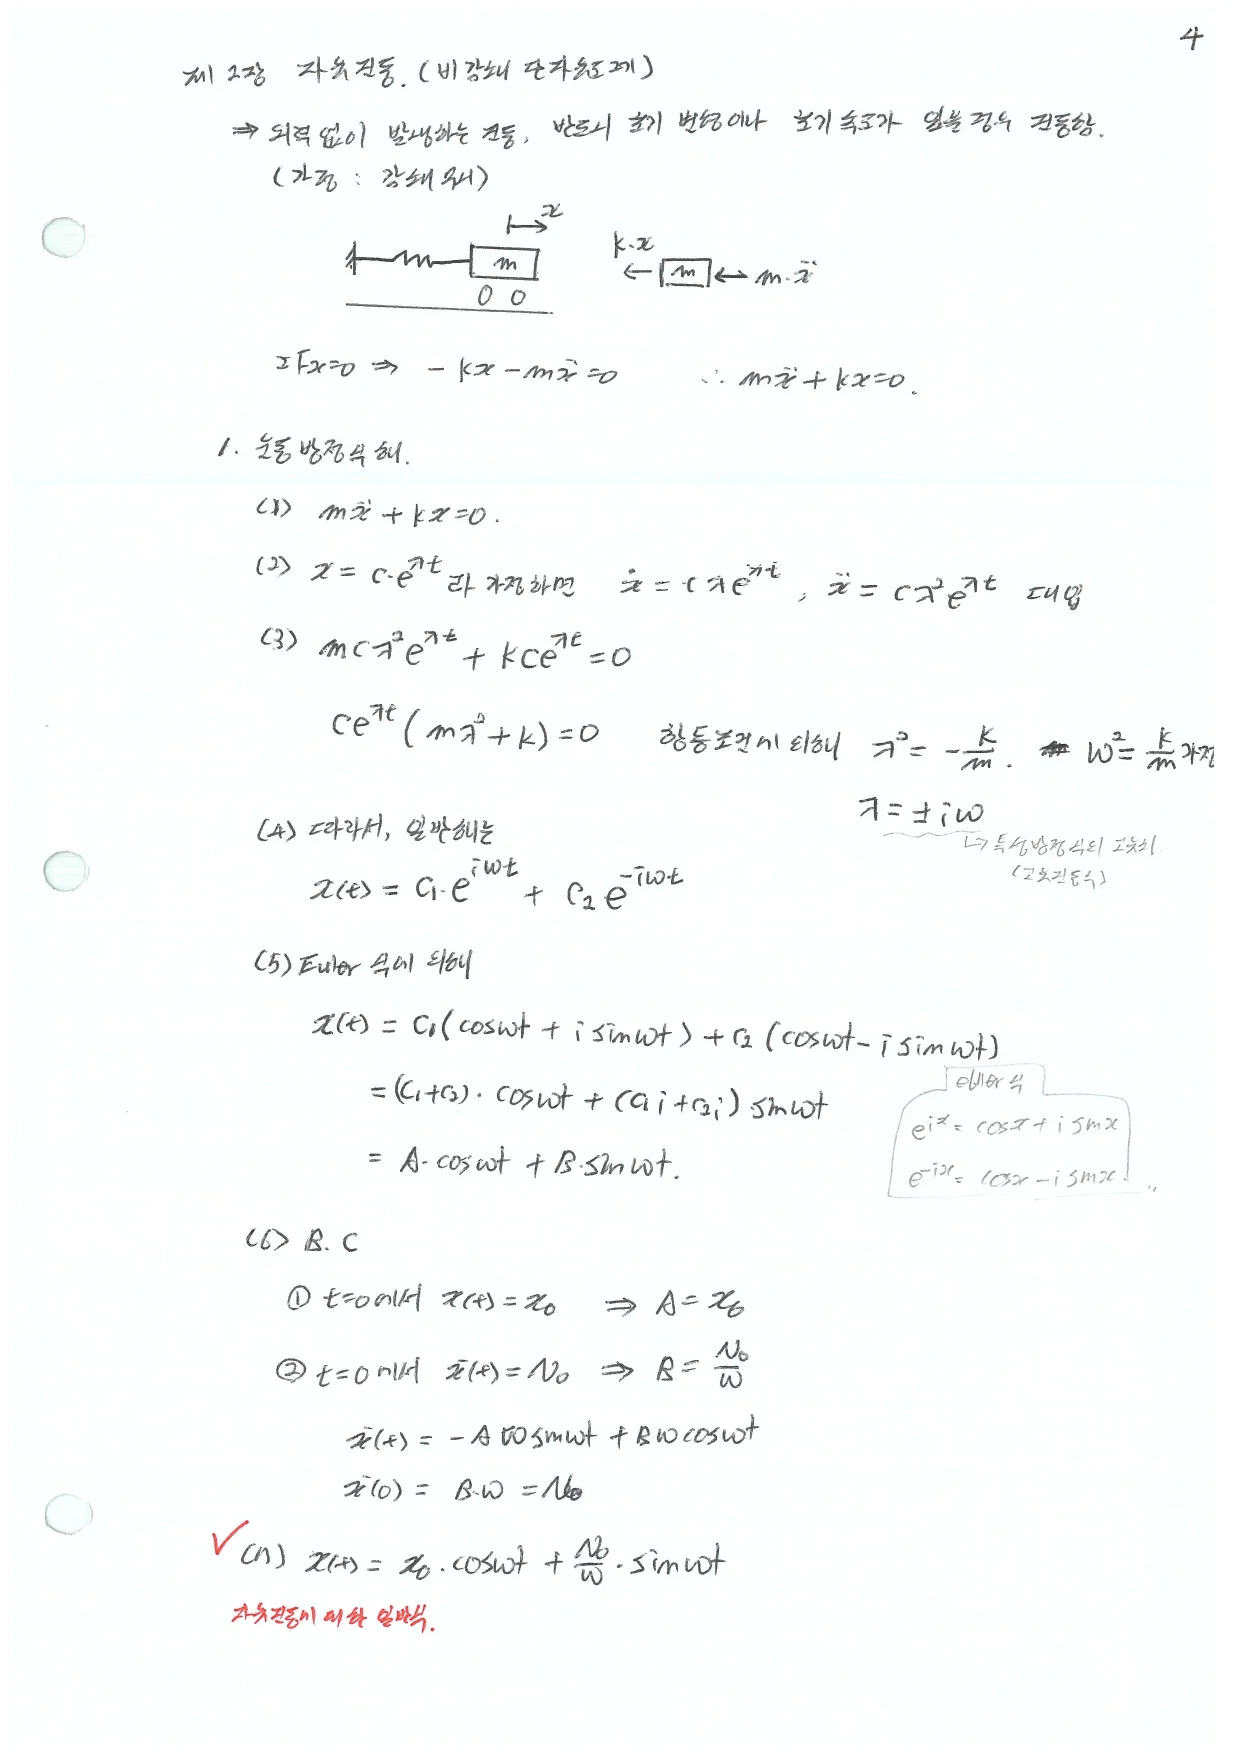 4
제 2장 자유진동. (비감쇠 단자유도계)
⇒ 외력 없이 발생하는 진동, 반드시 초기 변형이나 초기 속도가 있을 경우 진동함.
(가정 : 감쇠 무시)
x
m
k·x
m
m·ẍ
ΣFx=0 ⇒ - kx - mẍ = 0 ∴ mẍ + kx=0.
1. 운동방정식 해.
(1) mẍ + kx=0.
(2) x = c·e^λt 라 가정하면 ẋ = cλe^λt , ẍ = cλ²e^λt 대입
(3) mcλ²e^λt + kce^λt = 0
ce^λt (mλ²+k) = 0 항등조건에 의해 λ² = -k/m . ω² = k/m 가정
λ = ± iω
↳ 특성방정식의 고유치
(고유진동수)
(4) 따라서, 일반해는
x(t) = C₁·e^iωt + C₂e^-iωt
(5) Euler 식에 의해
x(t) = C₁(cosωt + i sinωt) + C₂ (cosωt - i sinωt)
= (C₁+C₂)· cosωt + (C₁i+C₂i) sinωt
= A· cosωt + B·sinωt.
Euler 식
e^ix = cosx + i sinx
e^-ix = cosx - i sinx
(6) B. C
① t=0에서 x(t) = x₀ ⇒ A = x₀
② t=0에서 ẋ(t) = v₀ ⇒ B = v₀/ω
ẋ(t) = - Aωsinωt + Bωcosωt
ẋ(0) = B·ω = v₀
✓ (7) x(t) = x₀·cosωt + v₀/ω · sinωt
자유진동에 대한 일반식.